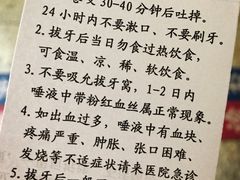 30-40分钟后吐掉。
24小时内不要漱口、不要刷牙。
2. 拔牙后当日勿食过热饮食,
可食温、凉、稀、软饮食。
3. 不要吸允拔牙窝,1-2日内
唾液中带粉红血丝属正常现象。
4. 如出血过多,唾液中有血块、
疼痛严重、肿胀、张口困难、
发烧等不适症状请来医院急诊
5. 拔牙后一般